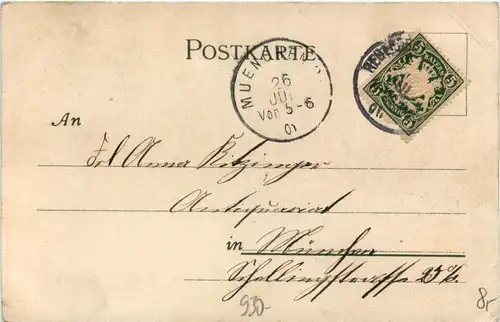 POSTKARTE
MUENCHEN
26
JUL
Vor 5-6
01
5 5
5 5
An
Frl Anna Kitzinger
Antiquariat
in München
Schellingstrasse 25/
930-
8,